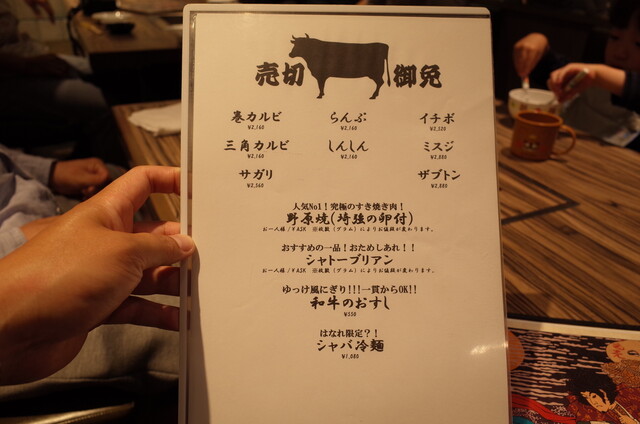 売切 御免
巻カルビ らんぷ イチボ
¥2,160 ¥2,160 ¥2,520
三角カルビ しんしん ミスジ
¥2,160 ¥2,160 ¥2,880
サガリ ザブトン
¥2,560 ¥2,880
人気No1！究極のすき焼き肉！
野原焼(埼強の卵付)
お一人様 /¥ASK ※枚数（グラム）によりお値段が変わります。
おすすめの一品！おためしあれ！！
シャトーブリアン
お一人様 /¥ASK ※枚数（グラム）によりお値段が変わります。
ゆっけ風にぎり!!!一貫からOK!!
和牛のおすし
¥550
はなれ限定？！
シャバ冷麺
¥1,080